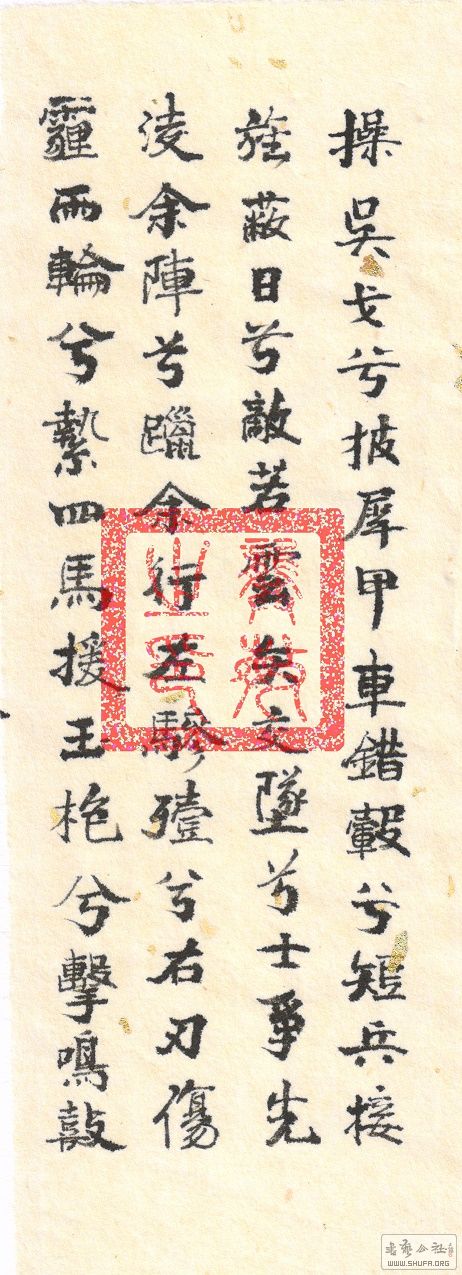 操吳戈兮披犀甲車錯轂兮短兵接
旌蔽日兮敵若雲矢交墜兮士爭先
淩余陣兮躐余行左驂殪兮右刃傷
霾兩輪兮縶四馬援玉枹兮擊鳴鼓
WWW.SHUFA.ORG